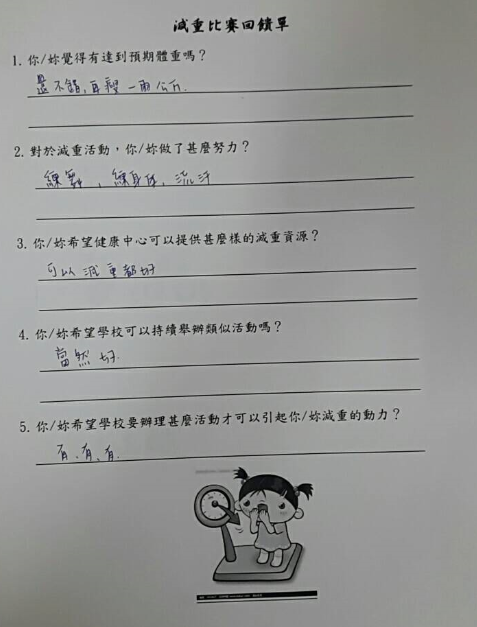 減重比賽回饋單
1. 你/妳覺得有達到預期體重嗎？
還不錯，再瘦一兩公斤.
2. 對於減重活動，你/妳做了甚麼努力？
練舞，練身體，流汗
3. 你/妳希望健康中心可以提供甚麼樣的減重資源？
可以減重都好
4. 你/妳希望學校可以持續舉辦類似活動嗎？
當然好.
5. 你/妳希望學校要辦理甚麼活動才可以引起你/妳減重的動力？
有、有、有.